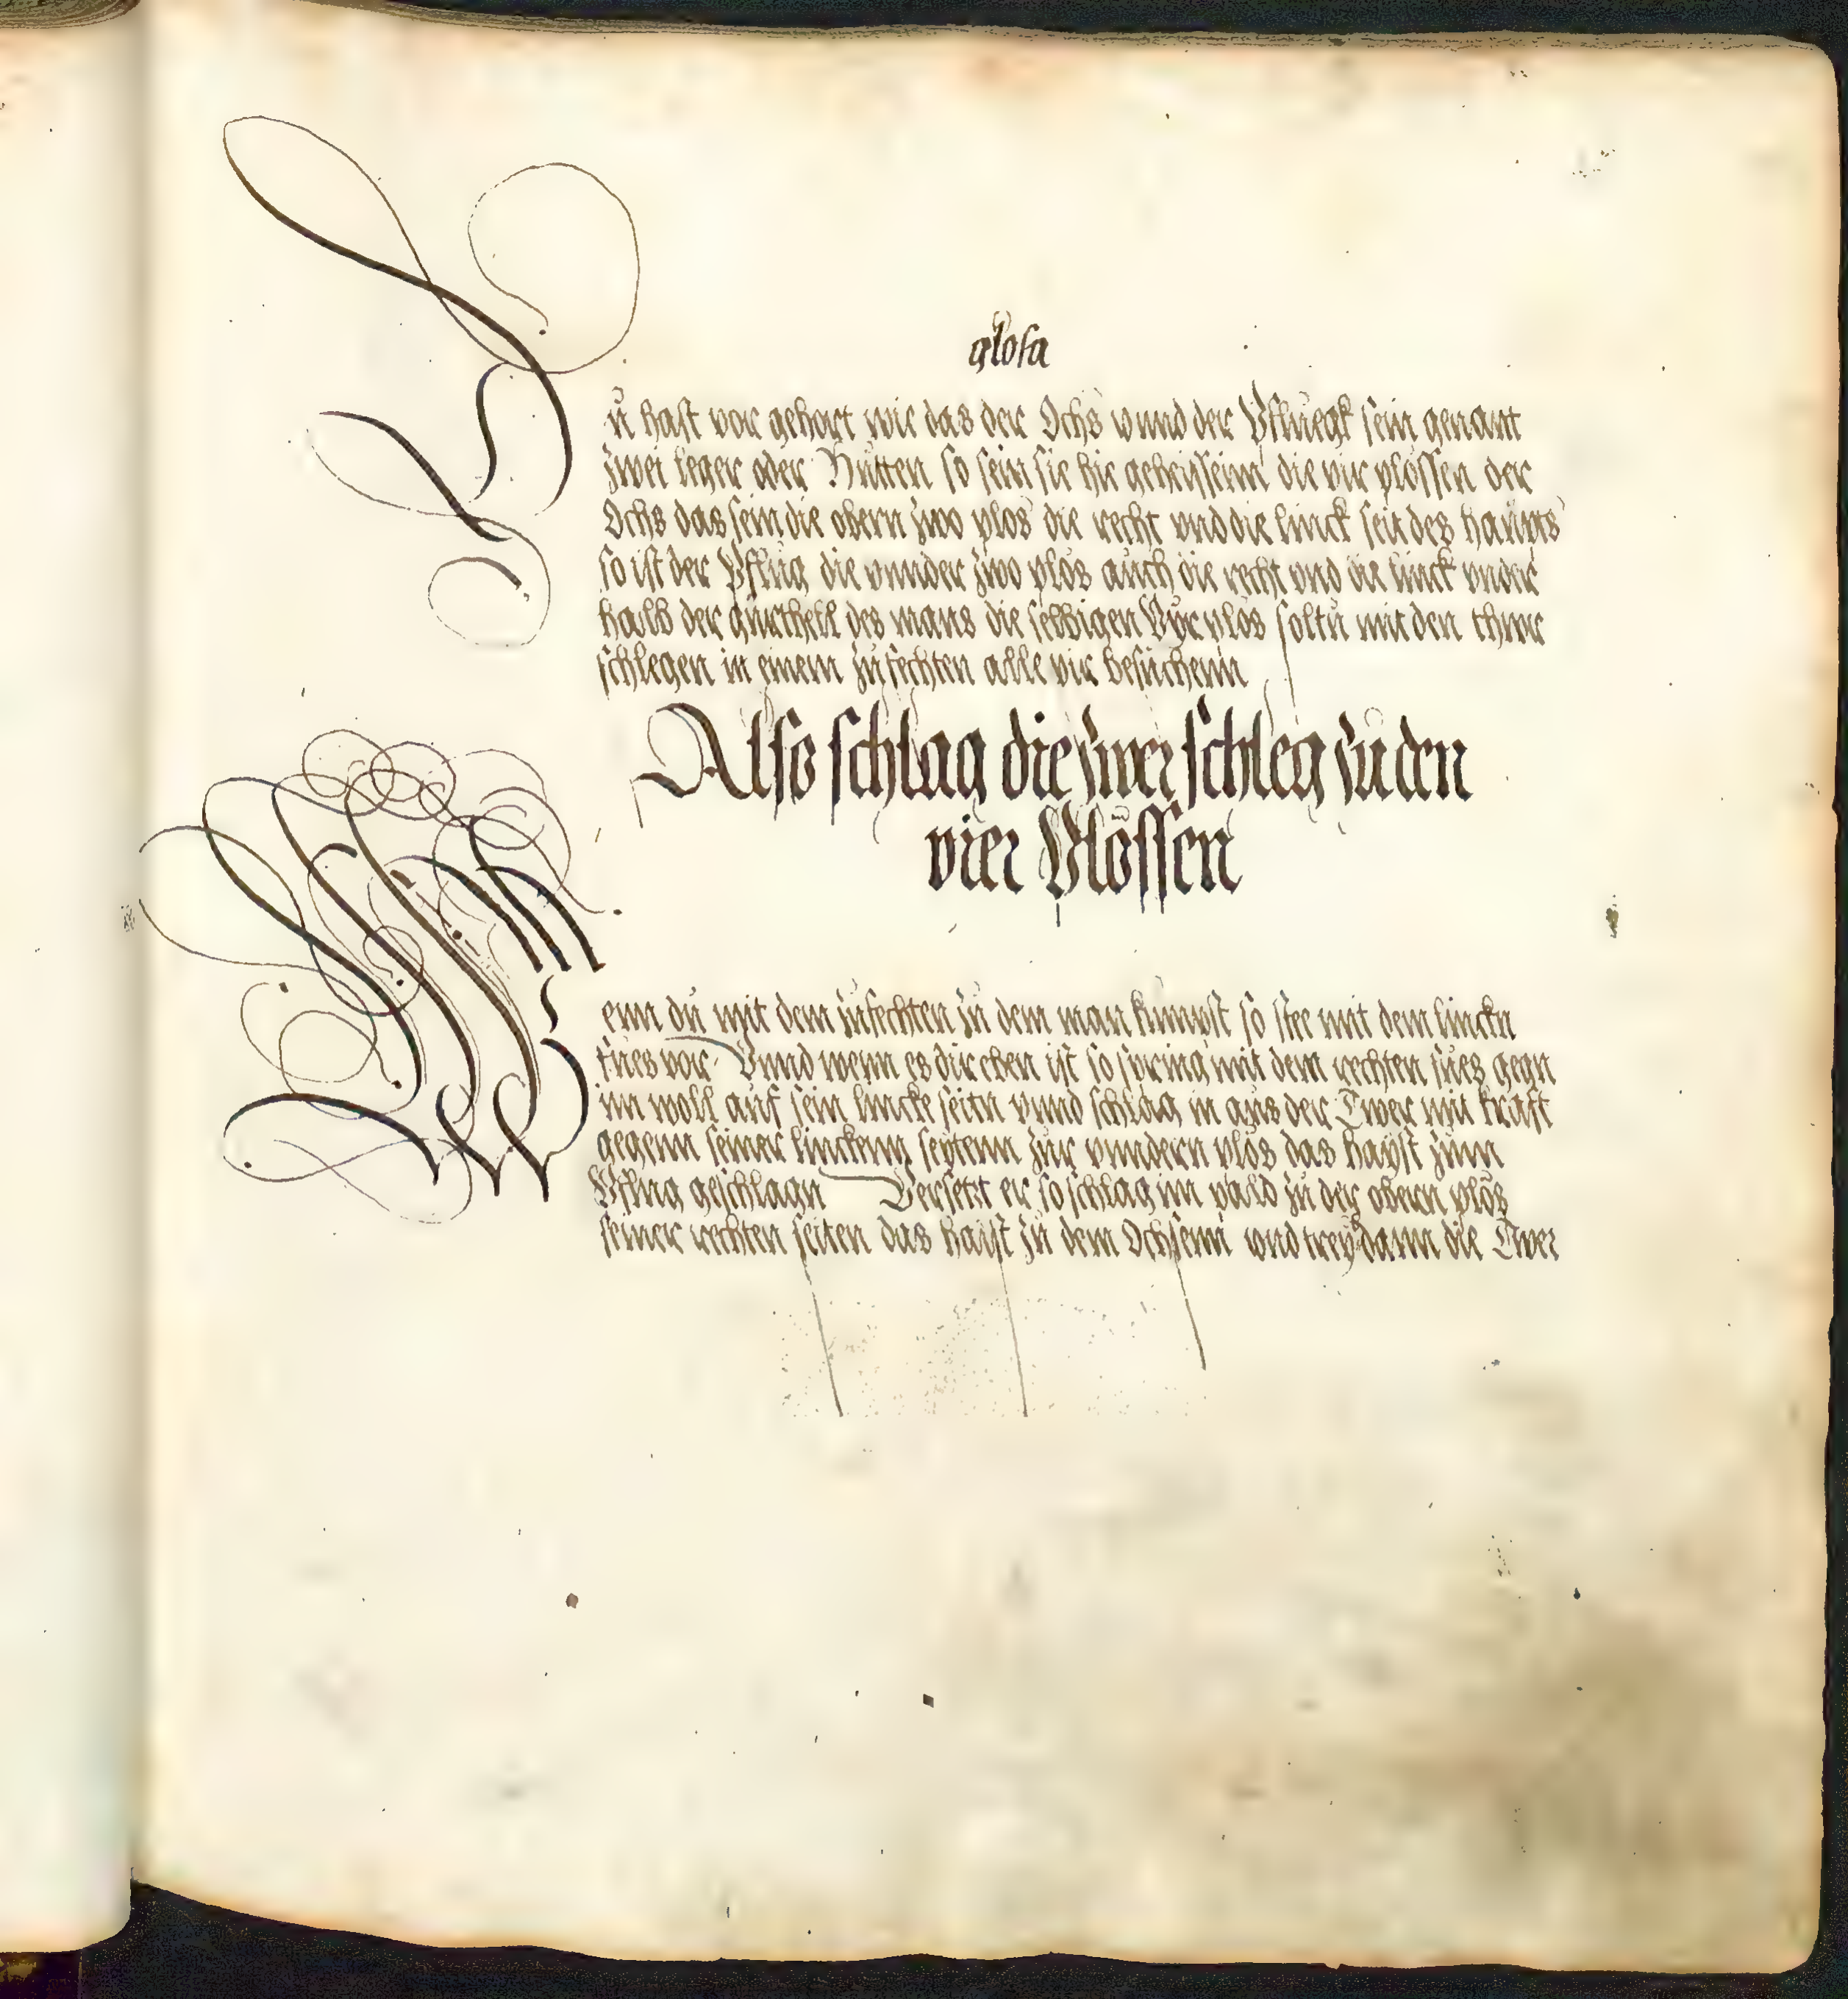 glosa
Dů hast vor gehort wie das der Ochs vnnd der Pfluegk sein genant
zwei leger oder Hütten so sein sie hie geheissenn die vir plössen der
Ochs das sein die obern zwo plos die recht vnd die linck seit des haupts
so ist der Pflug die vnnder zwo plos auch die recht vnd die linck vnder
halb der gürthell des mans die selbigen Vyr plos soltu mit den thwer
schlegen in einem zufechten alle vir besuchenn
Also schlag die zwer schleg zu den
vier Blössen
Wenn du mit dem zufechten zu dem man kumpst so stee mit dem linckn
fues vor Vnnd wenn es dir eben ist so spring mit dem rechten fues gegn
im woll auf sein lincke seitn vnnd schlag in aus der Twer mit kraft
gegenn seiner linckenn seytenn zur vnndern plos das hayst zum
Pflug geschlagn Versetzt er so schlag im pald zu der obern plos
seiner rechten seiten das haist zu dem Ochsenn vnd treyb dann die Twer